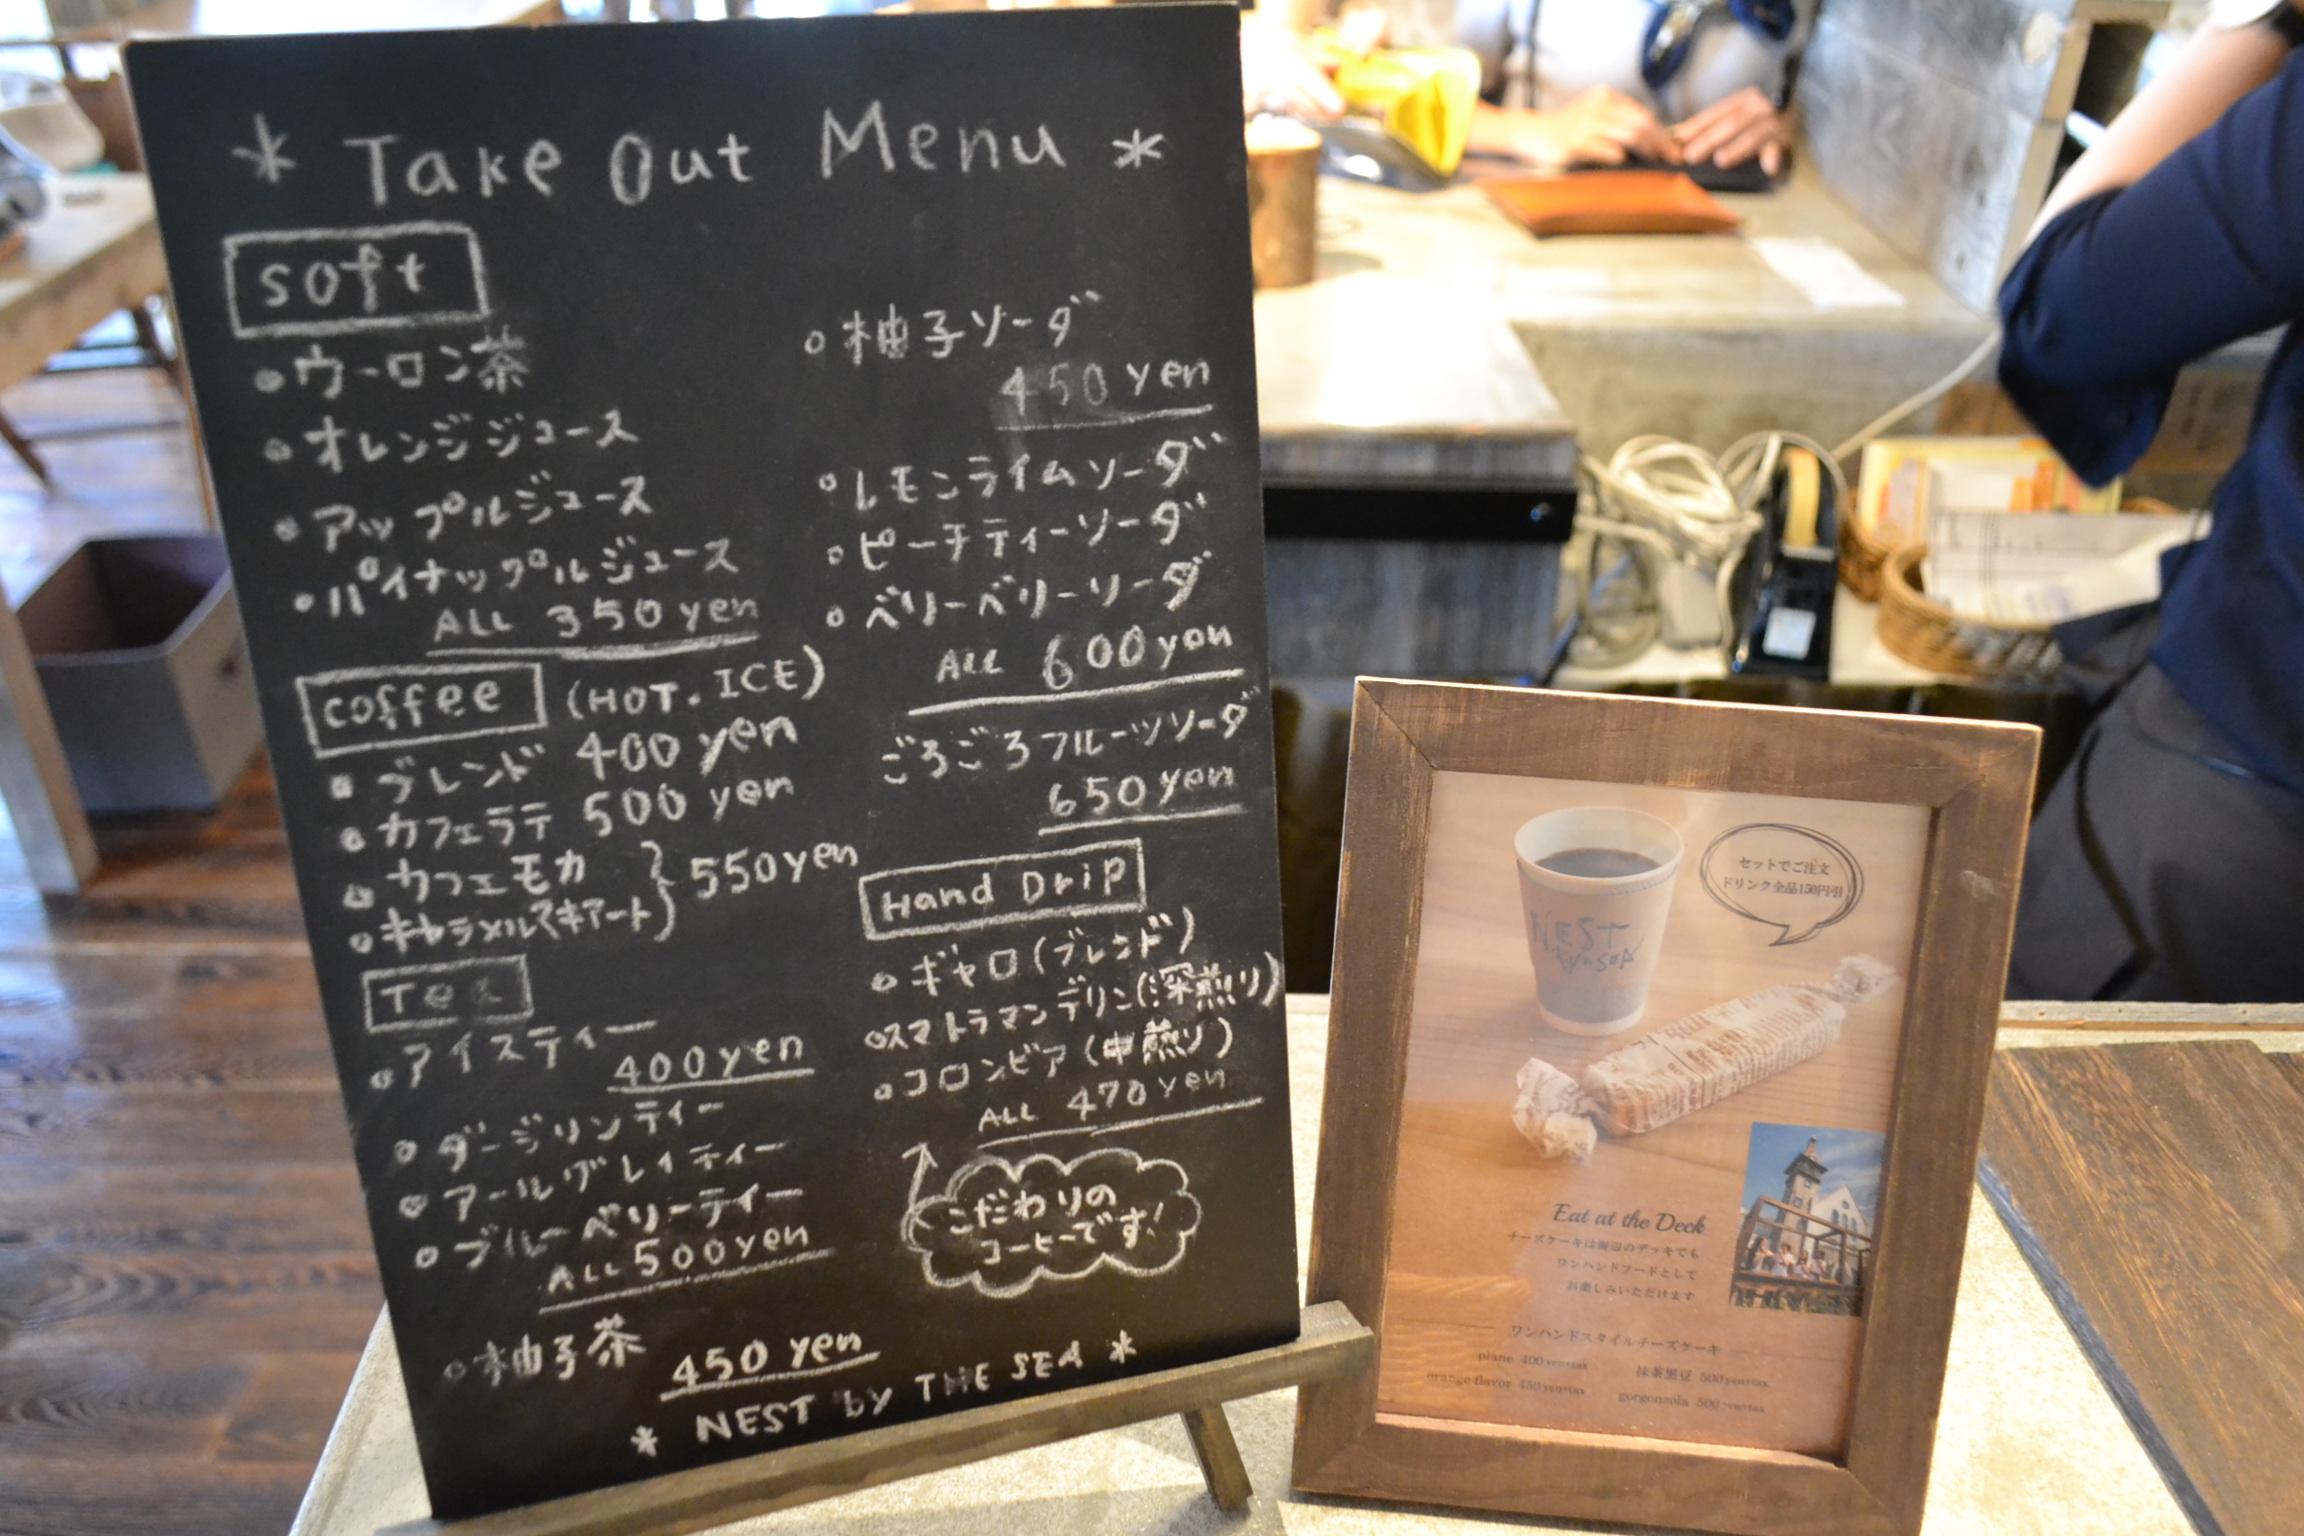 * Take Out Menu *
soft
ウーロン茶
オレンジジュース
アップルジュース
パイナップルジュース
ALL 350 yen
coffee (HOT. ICE)
ブレンド 400 yen
カフェラテ 500 yen
カフェモカ
キャラメルマキアート 550 yen
Tea
アイスティー
400 yen
ダージリンティー
アールグレイティー
ブルーベリーティー
ALL 500 yen
柚子茶
450 yen
柚子ソーダ
450 yen
レモンライムソーダ
ピーチティーソーダ
ベリーベリーソーダ
ALL 600 yen
ごろごろフルーツソーダ
650 yen
Hand Drip
ギャロ(ブレンド)
スマトラマンデリン(深煎り)
コロンビア(中煎り)
ALL 470 yen
こだわりの
コーヒーです!
* NEST by THE SEA *
セットでご注文
ドリンク全品150円引
NEST
Eat at the Deck
チーズケーキは海辺のデッキでも
ワンハンドフードとして
お楽しみいただけます
ワンハンドスタイルチーズケーキ
plane 400yen+tax 抹茶黒豆 500yen+tax
orange flavor 450yen+tax gorgonzola 500yen+tax